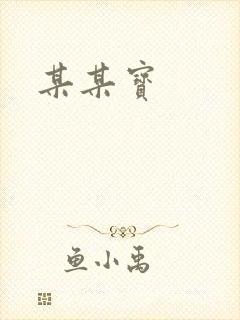 某某寶
鱼小禹